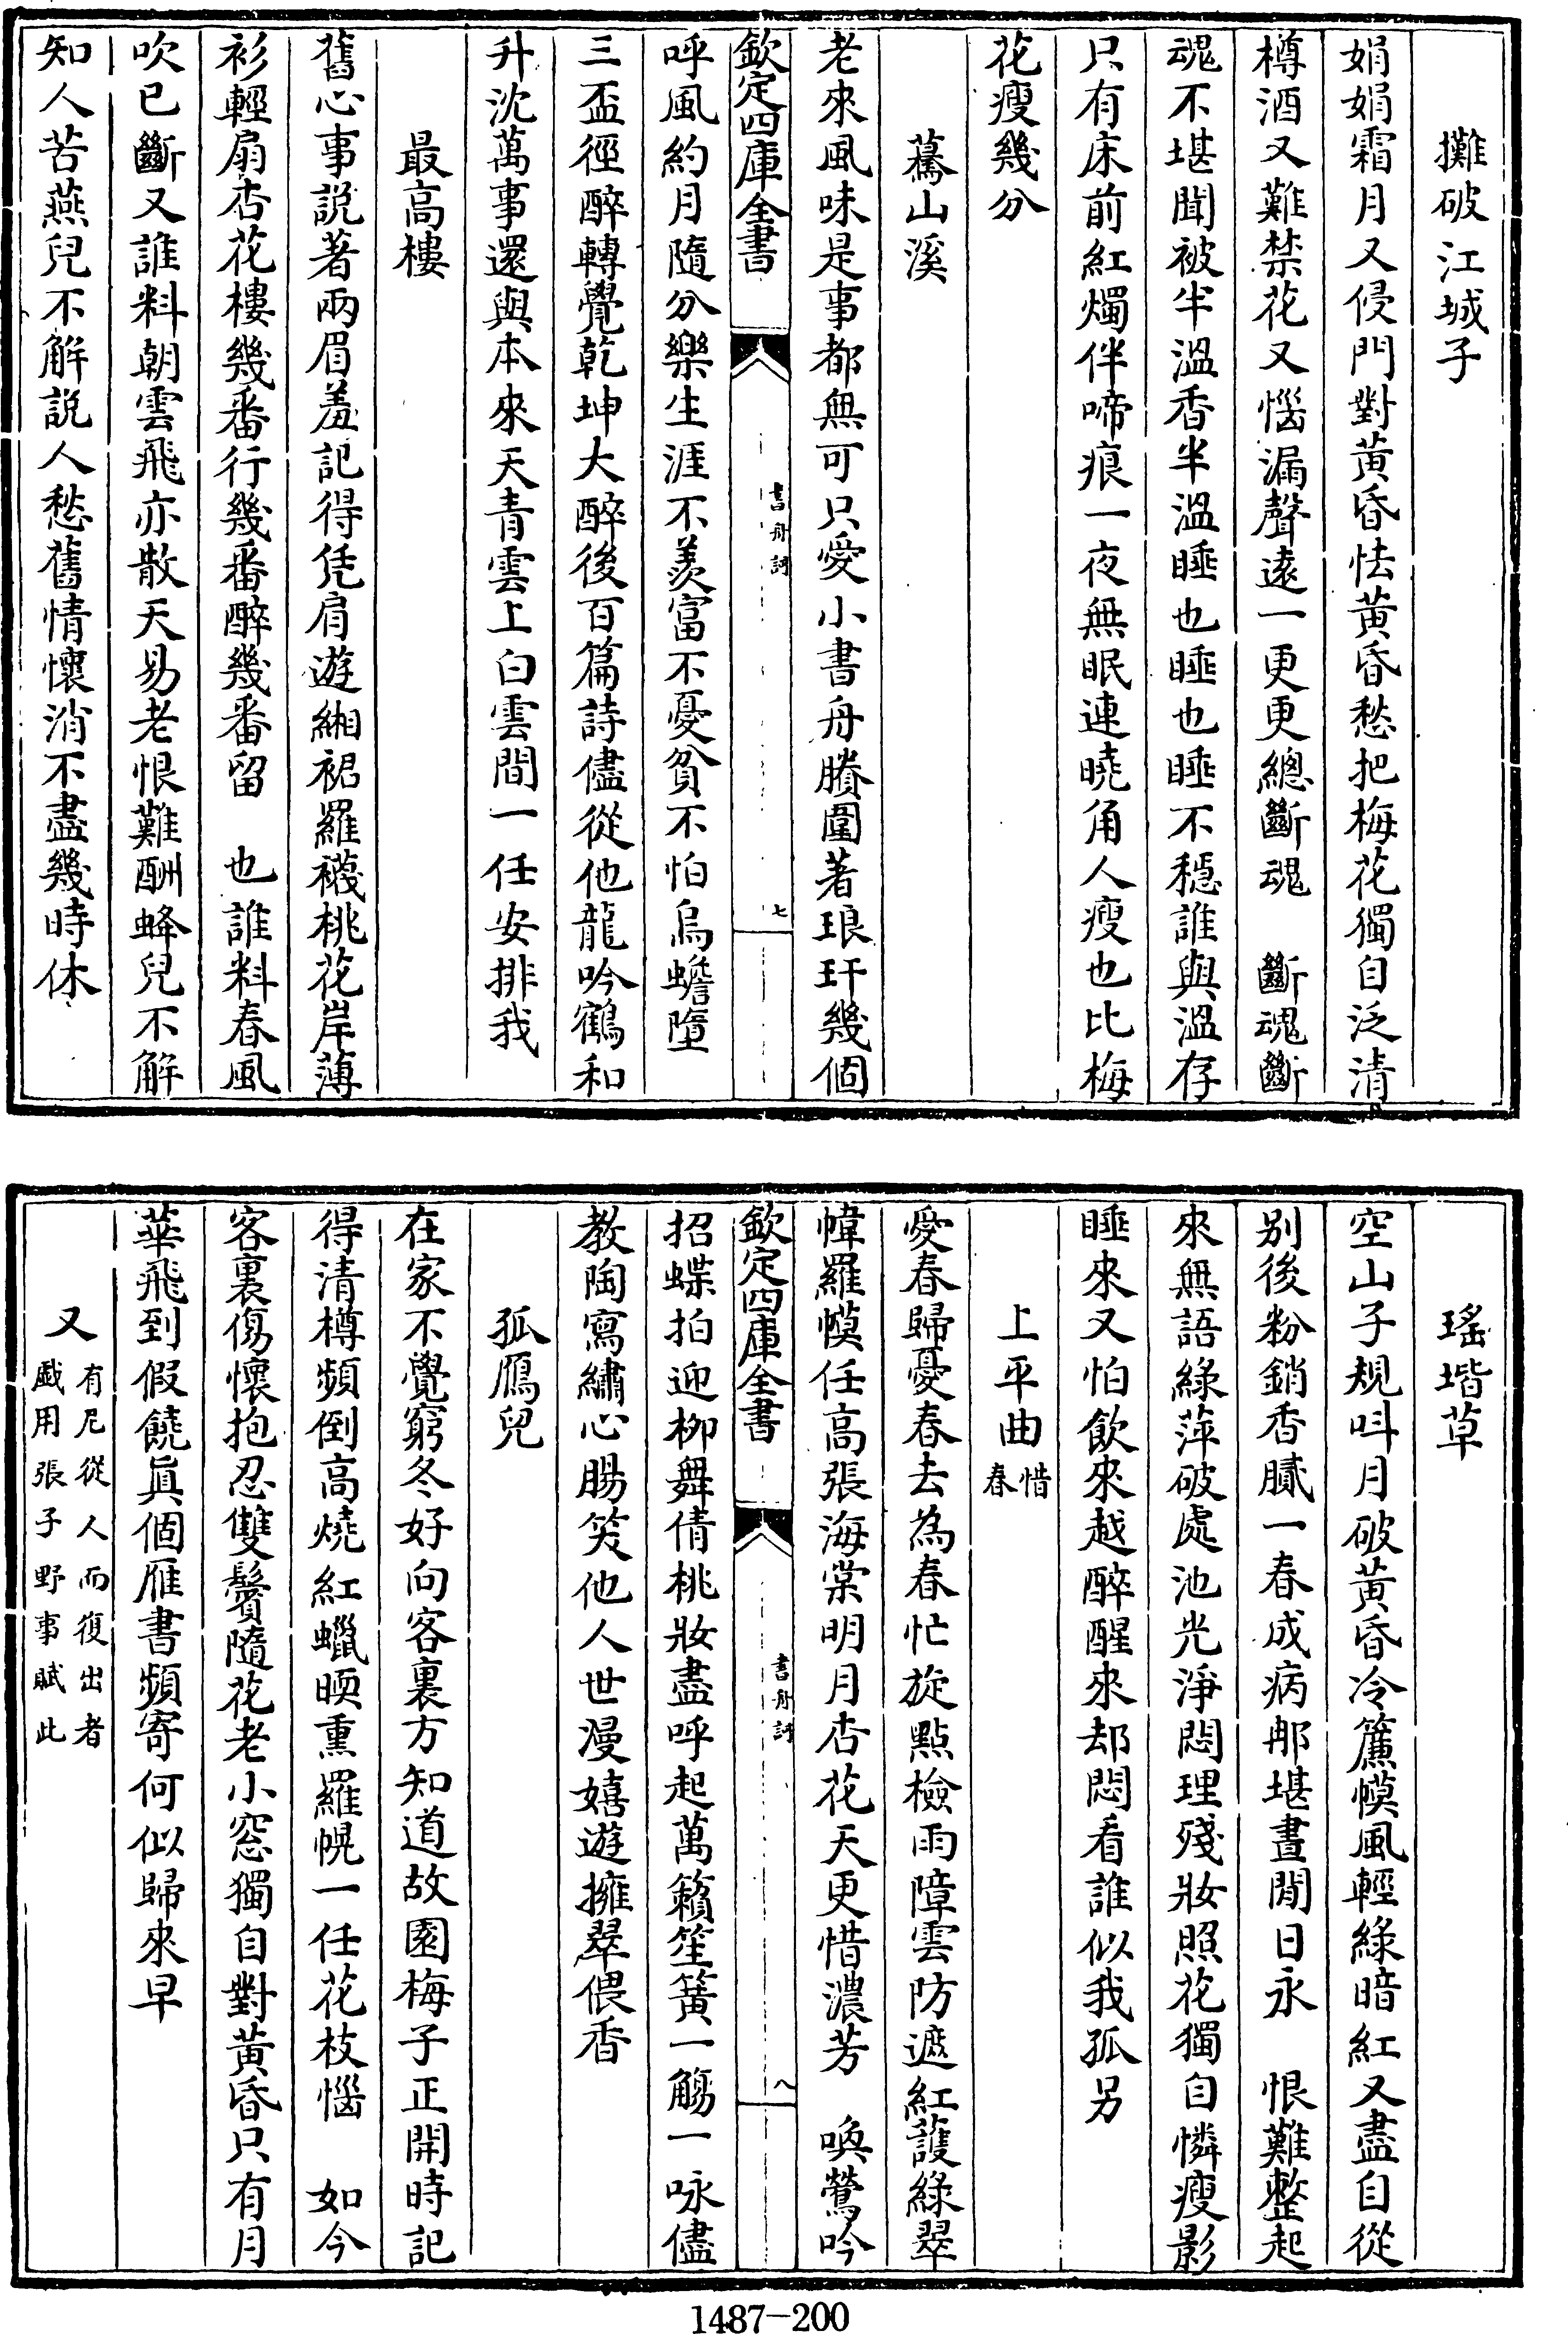 攤破江城子
娟娟霜月又侵門對黃昏怯黃昏愁把梅花獨自泛清
樽酒又難禁花又惱漏聲遠一更更總斷魂　斷魂斷
魂不堪聞被半溫香半溫睡也睡也睡不穩誰與溫存
只有床前紅燭伴啼痕一夜無眠連曉角人瘦也比梅
花瘦幾分
驀山溪
老來風味是事都無可只愛小書舟賸圍著琅玕幾個
欽定四庫全書
書舟詞
七
呼風約月隨分樂生涯不羨富不憂貧不怕烏蟾墮
三盃徑醉轉覺乾坤大醉後百篇詩儘從他龍吟鶴和
升沈萬事還與本來天青雲上白雲間一任安排我
最高樓
舊心事說著兩眉羞記得凭肩遊緗裙羅襪桃花岸薄
衫輕扇杏花樓幾番行幾番醉幾番留　也誰料春風
吹已斷又誰料朝雲飛亦散天易老恨難酬蜂兒不解
知人苦燕兒不解說人愁舊情懷消不盡幾時休
瑤堦草
空山子規叫月破黃昏冷簾幙風輕綠暗紅又盡自從
别後粉銷香膩一春成病那堪晝閒日永　恨難整起
來無語綠萍破處池光淨悶理殘妝照花獨自憐瘦影
睡來又怕飲來越醉醒來却悶看誰似我孤另
上平曲惜春
愛春歸憂春去為春忙旋點檢雨障雲防遮紅護綠翠
幃羅幙任高張海棠明月杏花天更惜濃芳　喚鶯吟
欽定四庫全書
書舟詞
八
招蝶拍迎柳舞倩桃妝盡呼起萬籟笙簧一觴一咏儘
教陶寫繡心腸笑他人世漫嬉遊擁翠偎香
孤鴈兒
在家不覺窮冬好向客裏方知道故園梅子正開時記
得清樽頻倒高燒紅蠟暖熏羅幌一任花枝惱　如今
客裏傷懷抱忍雙鬢隨花老小窓獨自對黃昏只有月
華飛到假饒眞個雁書頻寄何似歸來早
又有尼從人而復出者戲用張子野事賦此
1487-200